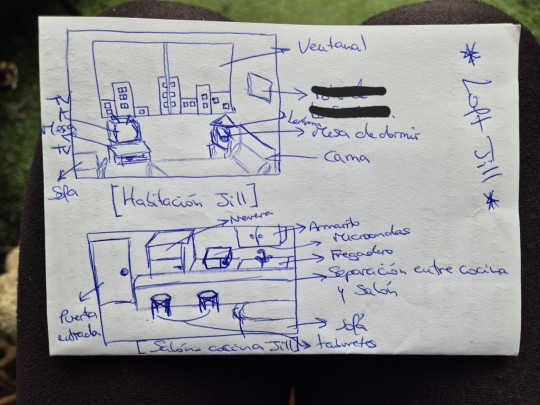 * Loft Jill *
Ventanal
Mesa de dormir
Cama
Sofa
[Habitación Jill]
Nevera
Armarito
Microondas
Fregadero
Separación entre cocina
y Salón
Puerta
entrada
Sofá
taburetes
[Salón-cocina Jill]